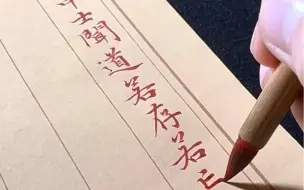 中士聞道若存若亡